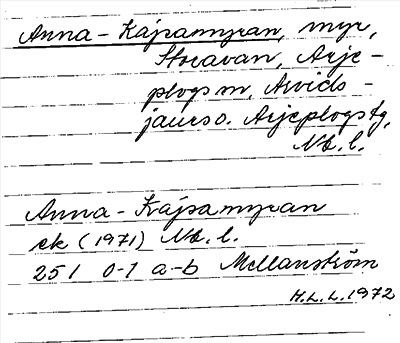 Anna-Kajsamyran, myr,
Storavan, Arje-
plogs m, Arvids-
jaurs o. Arjeplogs tg,
Nb. l.
Anna-Kajsamyran
ek (1971) Nb. l.
251 0-1 a-b Mellanström
H.L.L. 1972